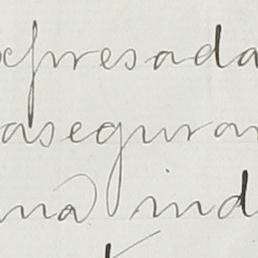 expresada
aseguran
una ind